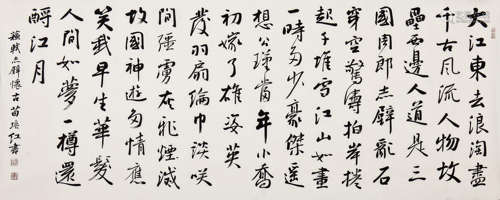 大江東去浪淘盡
千古風流人物故
壘西邊人道是三
國周郎赤壁亂石
穿空驚濤拍岸捲
起千堆雪江山如畫
一時多少豪傑遙
想公瑾當年小喬
初嫁了雄姿英
發羽扇綸巾談咲
間彊虜灰飛煙滅
故國神遊多情應
笑我早生華髮
人間如夢一樽還
酹江月
蘇軾赤壁懷古苗培红書